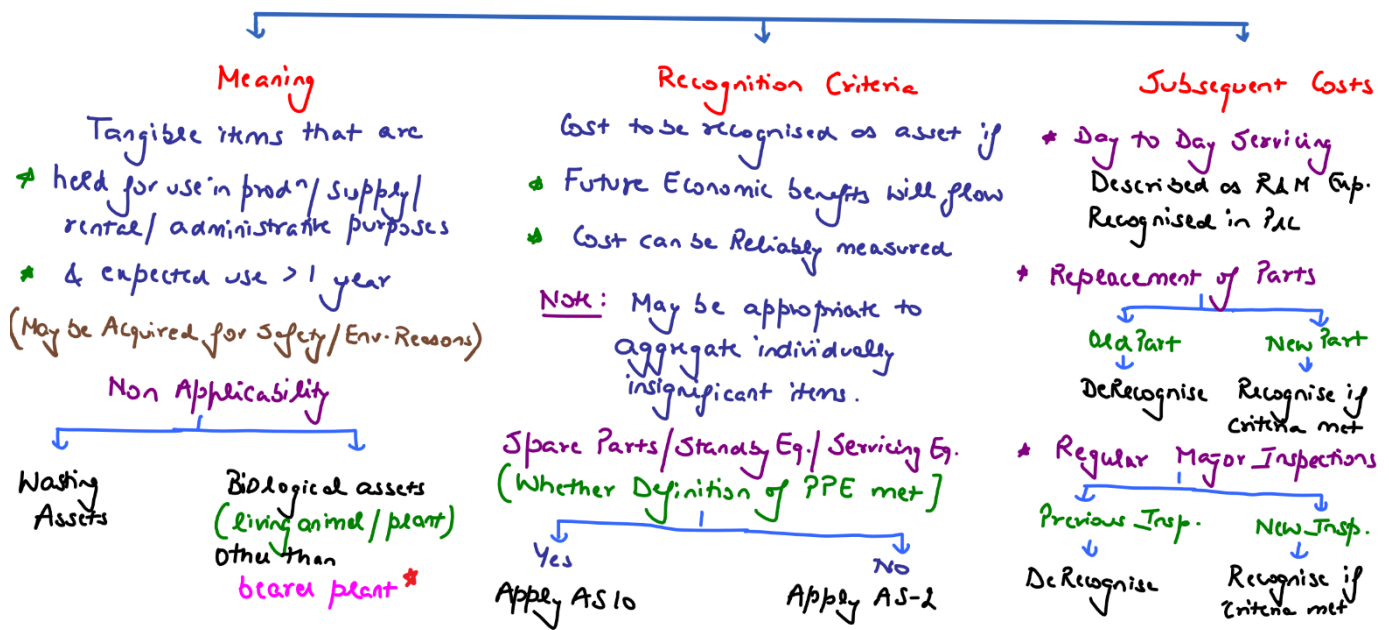 Meaning
Tangible items that are
* held for use in prodn/ supply/
rental/ administrative purposes
* & expected use > 1 year
(May be Acquired for Safety/Env. Reasons)
Non Applicability
Wasting
Assets
Biological assets
(living animal/plant)
Other than
bearer plant*
Recognition Criteria
Cost to be recognised as asset if
* Future Economic benefits will flow
* Cost can be Reliably measured
Note: May be appropriate to
aggregate individually
insignificant items.
Spare Parts/Standby Eq./Servicing Eq.
(Whether Definition of PPE met)
Yes
Apply AS 10
No
Apply AS-2
Subsequent Costs
* Day to Day Servicing
Described as R&M Exp.
Recognised in P&L
* Replacement of Parts
Old Part
DeRecognise
New Part
Recognise if
Criteria met
* Regular Major Inspections
Previous Insp.
DeRecognise
New Insp.
Recognise if
Criteria met